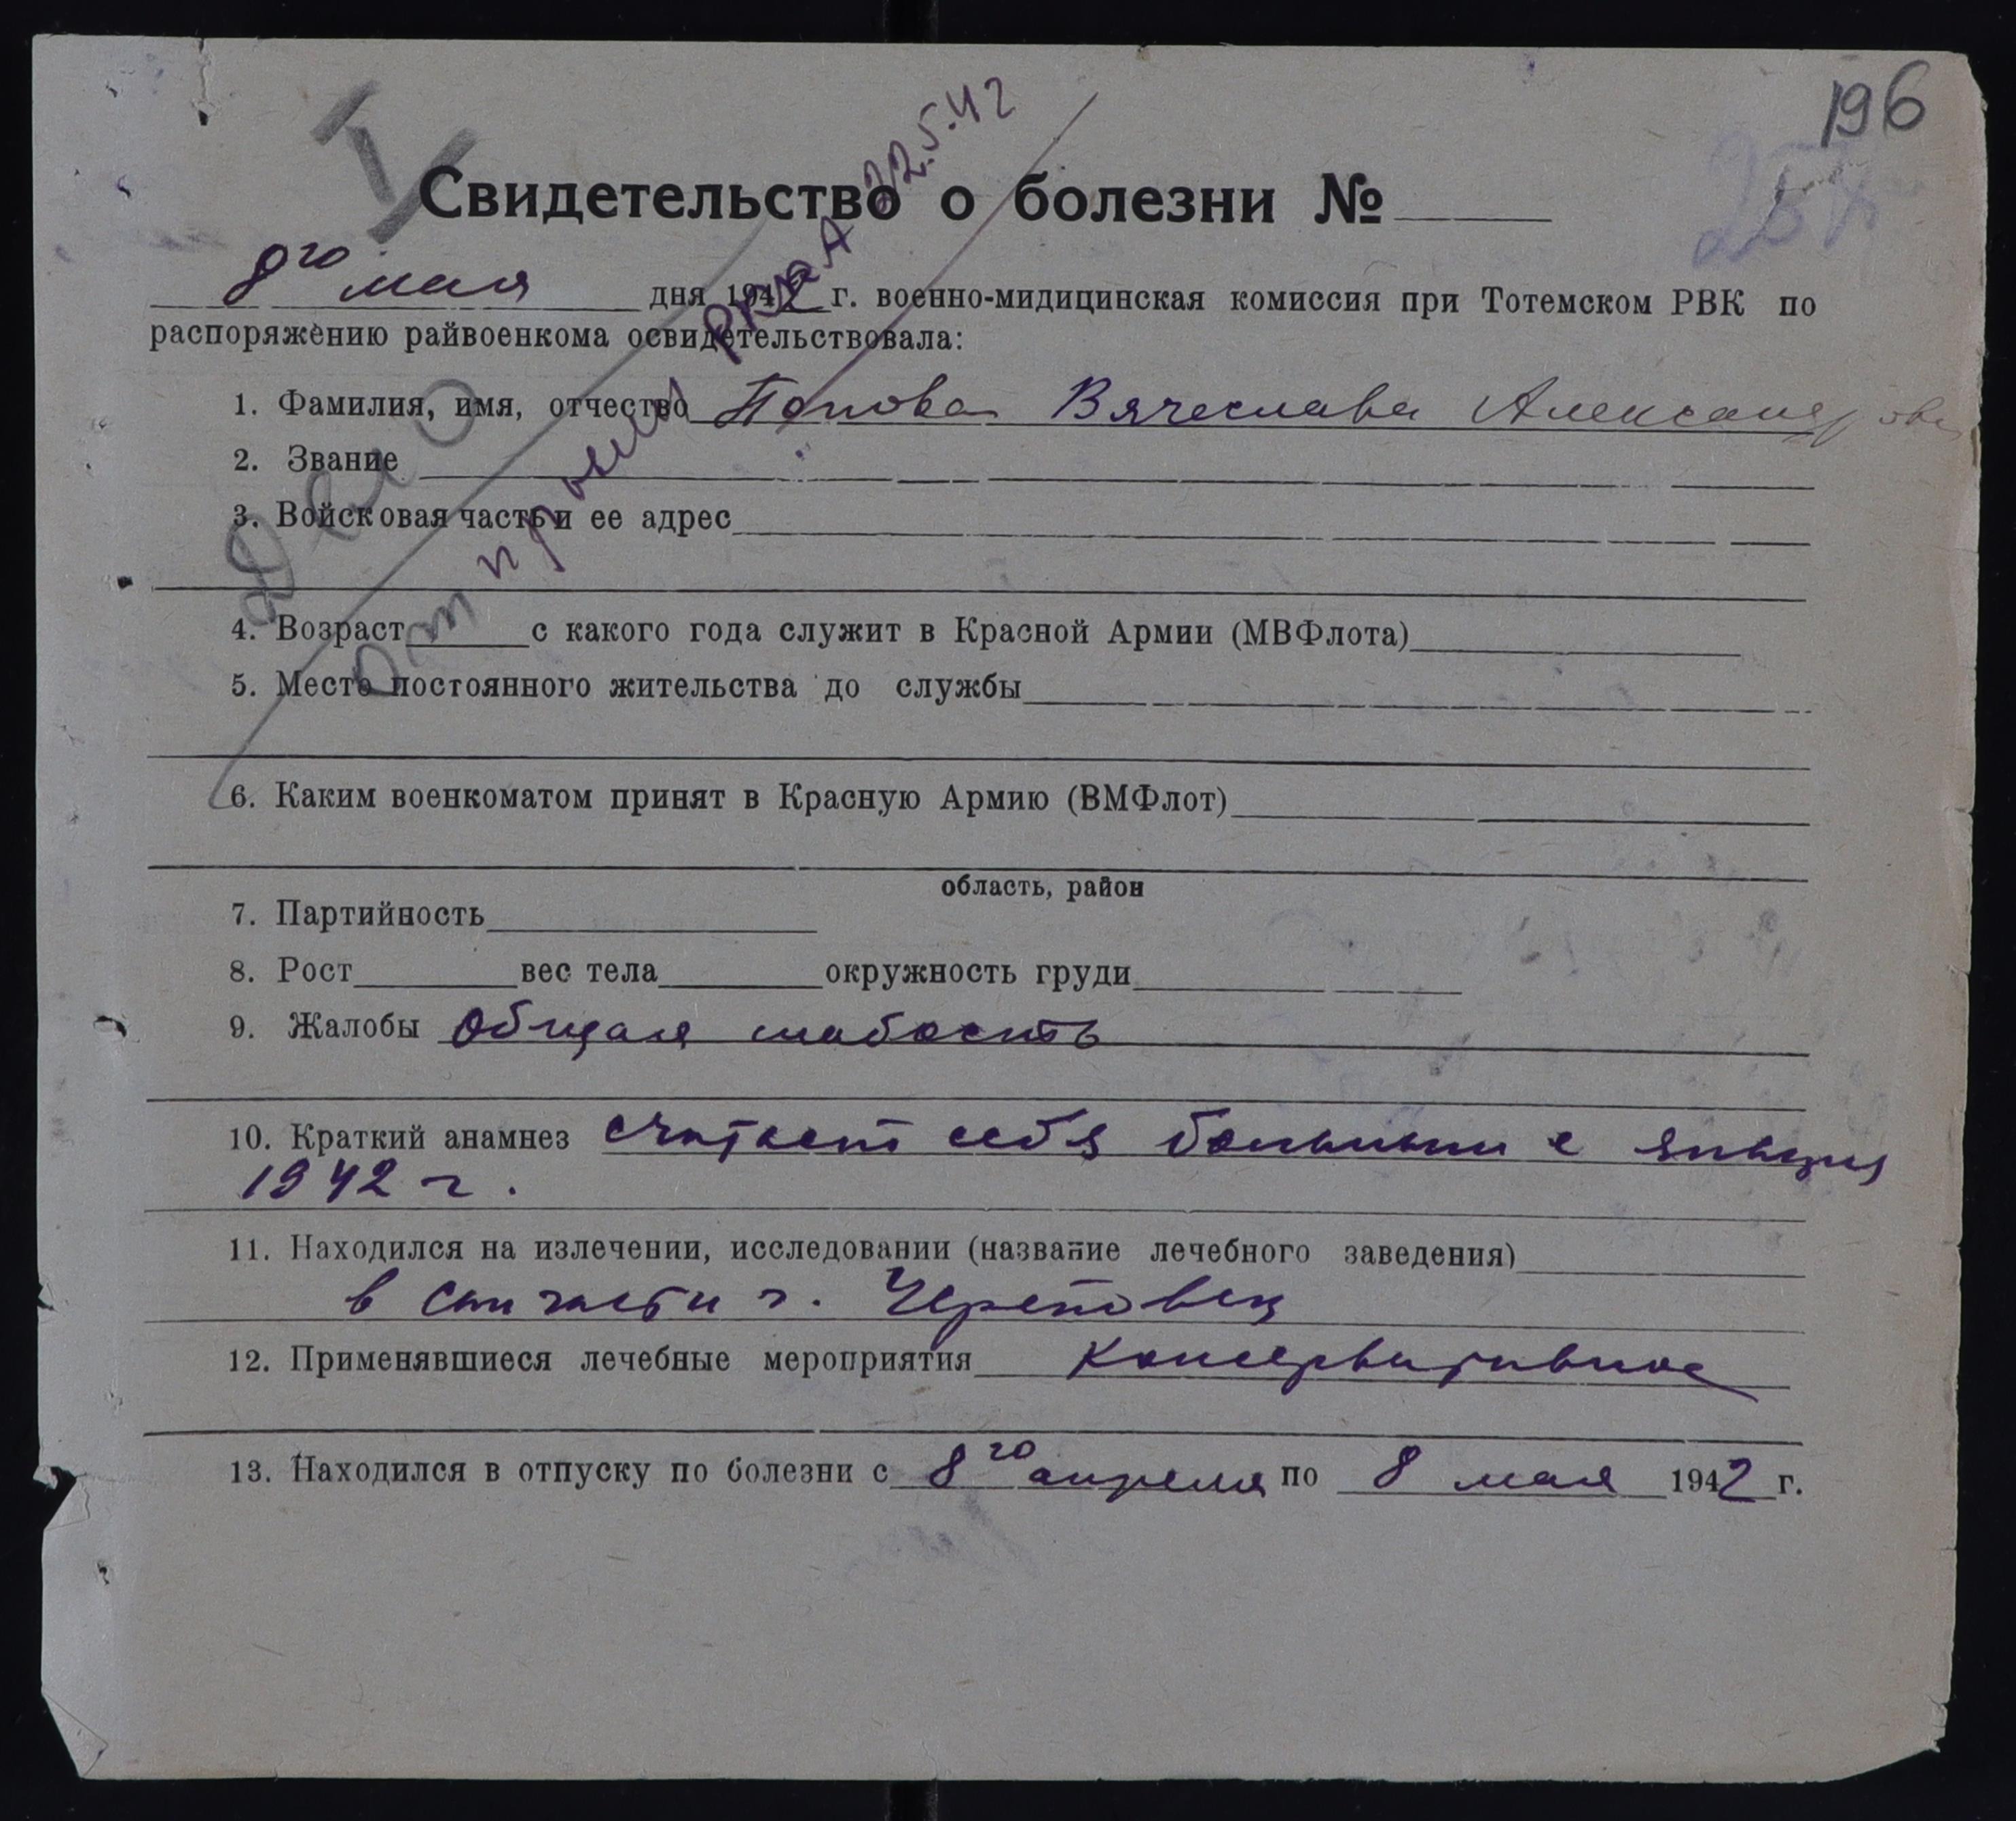 196
Свидетельство о болезни №
8го мая дня 1942 г. военно-мидицинская комиссия при Тотемском РВК по
распоряжению райвоенкома освидетельствовала:
1. Фамилия, имя, отчество Попова Вячеслава Александрови
2. Звание
3. Войсковая часть и ее адрес
4. Возраст с какого года служит в Красной Армии (МВФлота)
5. Место постоянного жительства до службы
6. Каким военкоматом принят в Красную Армию (ВМФлот)
область, район
7. Партийность
8. Рост вес тела окружность груди
9. Жалобы Общая слабость
10. Краткий анамнез считает себя больным с января
1942 г.
11. Находился на излечении, исследовании (название лечебного заведения)
в сан части г. Череповец
12. Применявшиеся лечебные мероприятия консервативное
13. Находился в отпуску по болезни с 8го апреля по 8 мая 1942 г.
Дело
Отправлен РККА 22.5.42